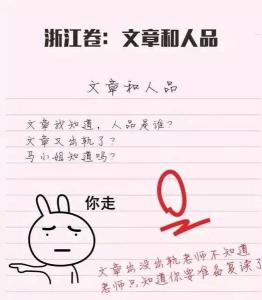 浙江卷：文章和人品
文章和人品
文章我知道，人品是谁？
文章又出轨了？
马小姐知道吗？
你走
0
文章出没出轨老师不知道
老师只知道你要准备复读了